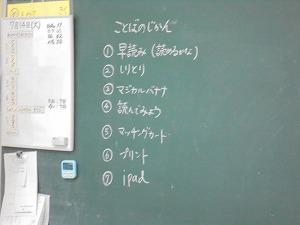 7月14日(火)
ことばのじかん
① 早読み (読めるかな)
② しりとり
③ マジカルバナナ
④ 読んでみよう
⑤ マッチングカード
⑥ プリント
⑦ ipad